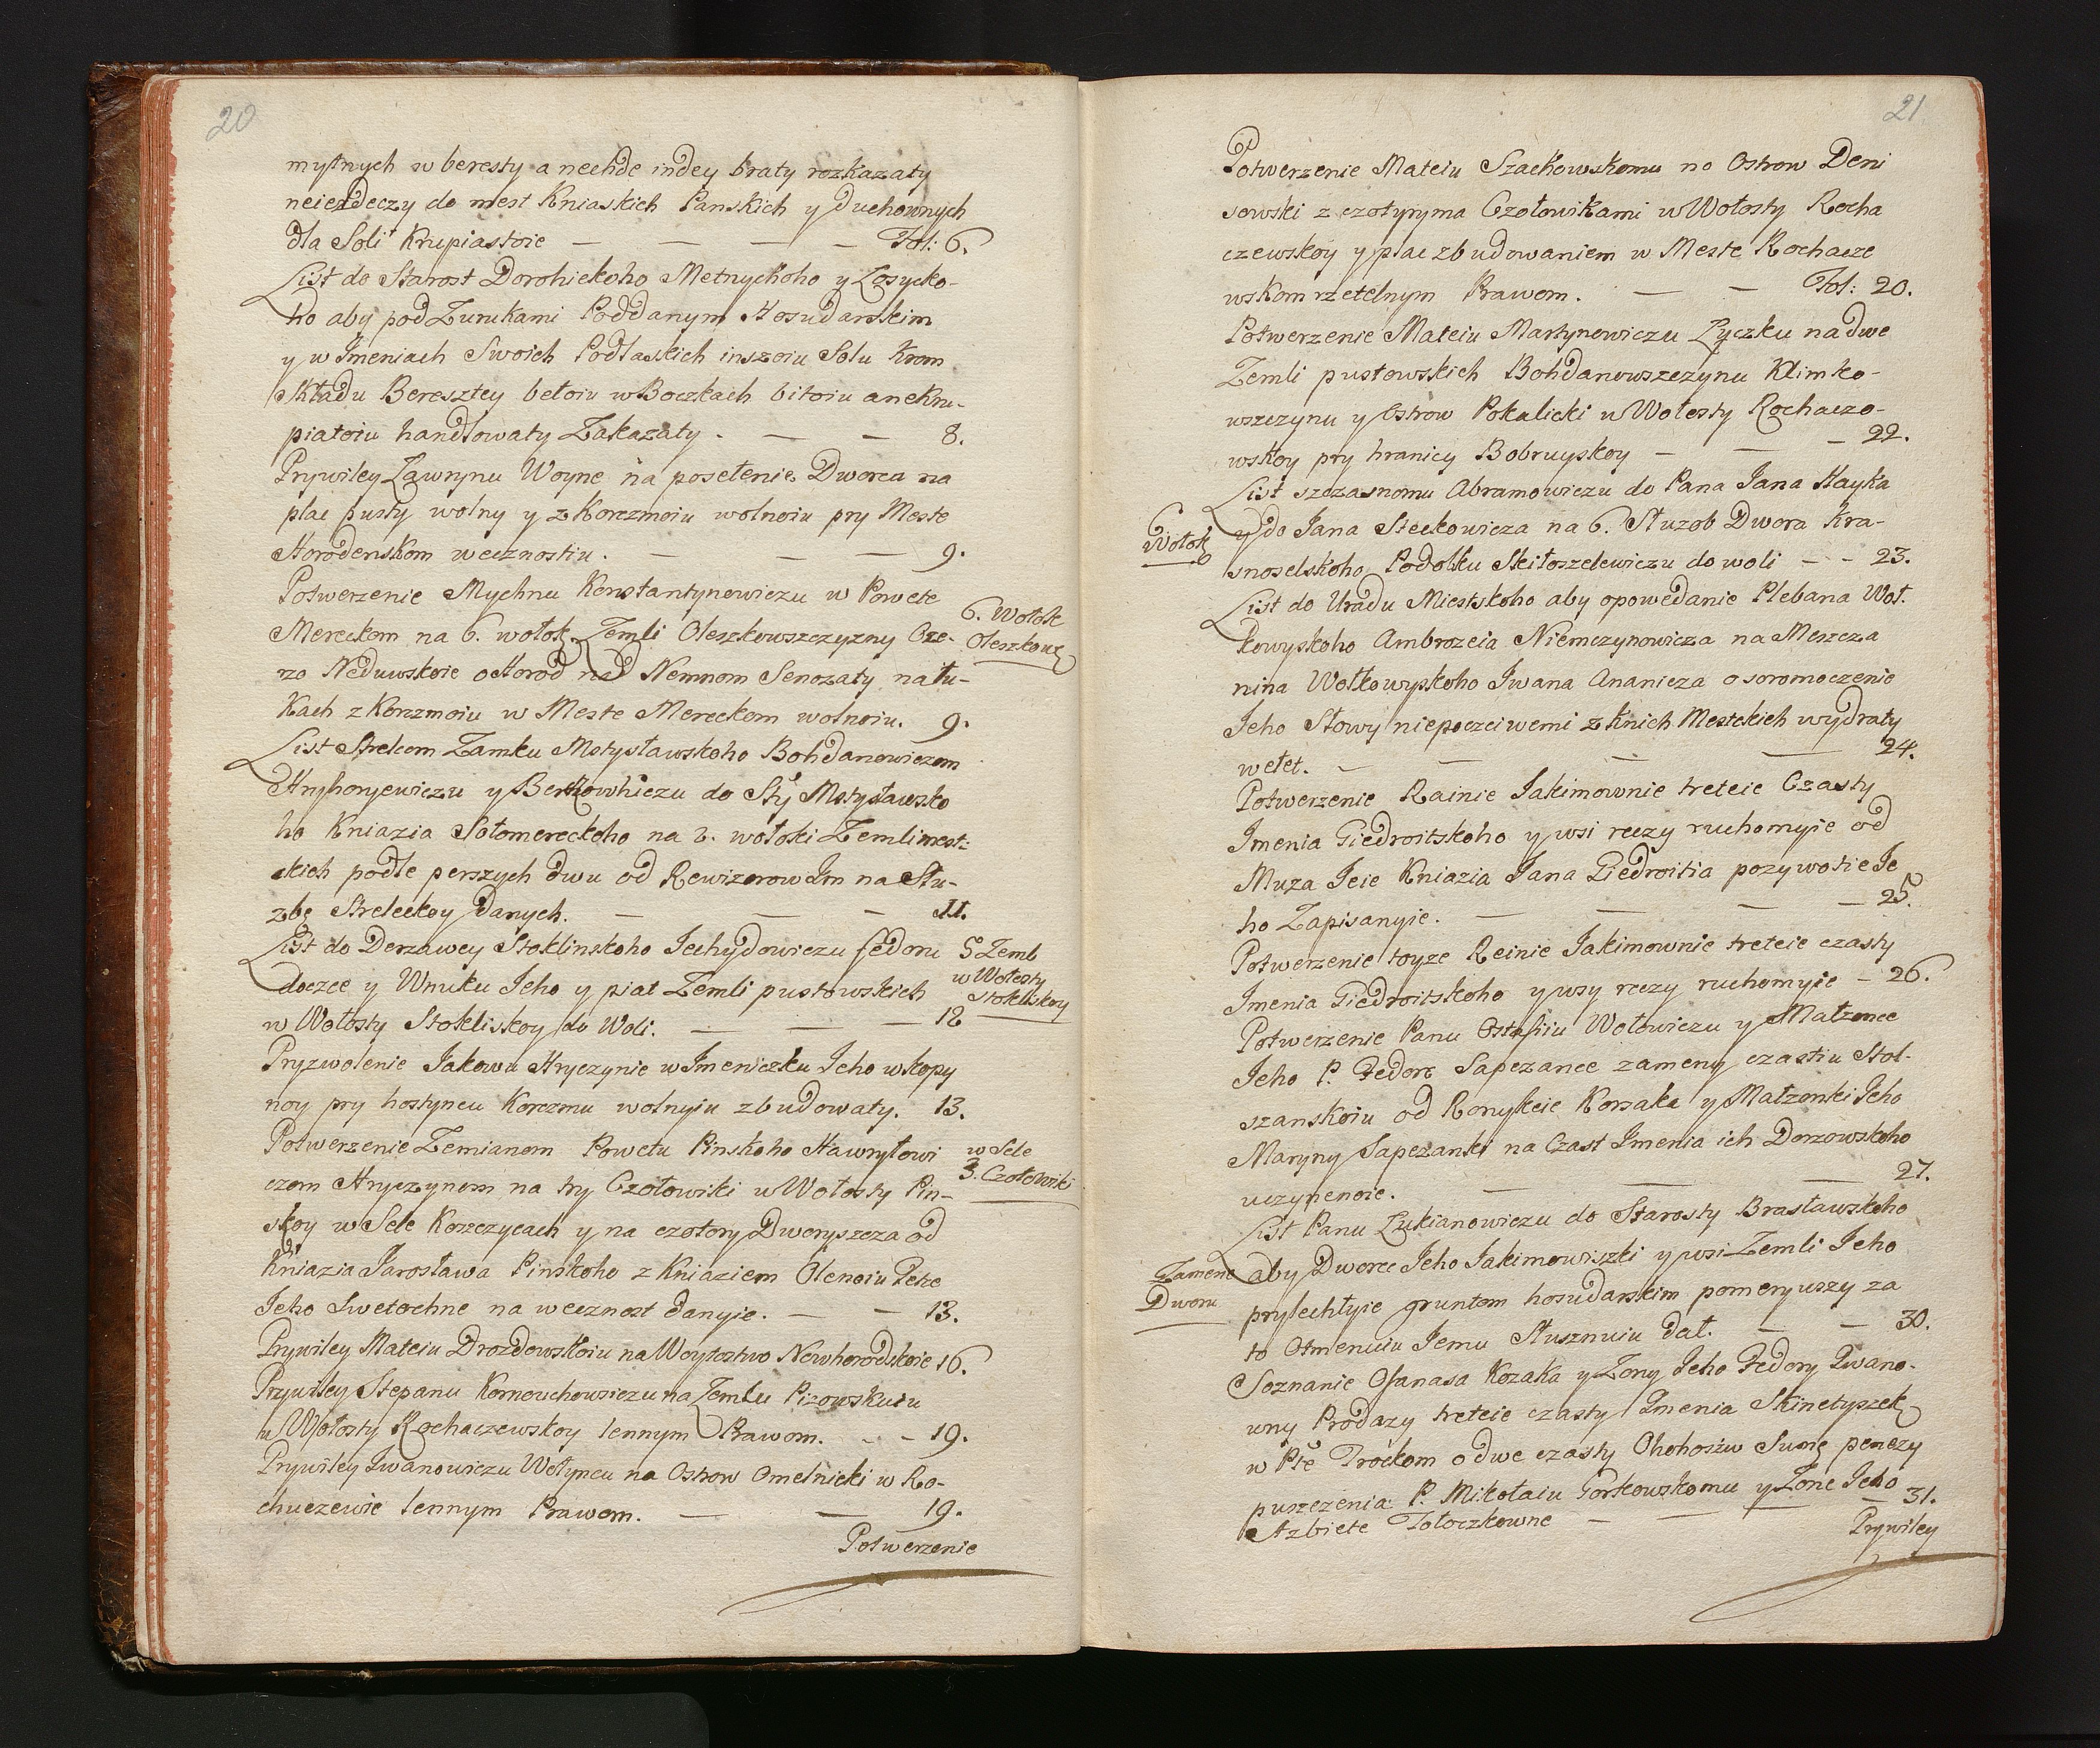 20
mytnych w beresty a nechde indey braty rozkazaty
neiezdeczy do mest Kniaskich Panskich y duchownych
dla Soli Krupiastoie — — — — Fol: 6.
List do Starost Dorohickoho Melnyckoho y Łosycko-
ho aby pod Zunikami Poddanym Hosudarskim
y w Imeniach Swoich Podlaskich inszoiu Solu Krom
Składu Beresztey bełoiu w Boczkach bitoiu a ne Kru-
piatoiu handlowaty Zakazaty. — — 8.
Prywiley Ławrynu Woyne na poselenie Dworca na
plac pusty wolny y z Korczmoiu wolnoiu pry Meste
Horodenskom wecznostiu. — — — 9.
Potwerzenie Mychnu Konstantynowiczu w Powete
Mereckom na 6. wołok Zemli Oleszkowszczyzny Oze-
ro Neduwskoie o Horod nad Nemnom Senozaty na łu-
Kach z Korczmoiu w Meste Mereckom wolnoiu. 9.
6. Wołok
Oleszkow:
List Strelcom Zamku Mstysławskoho Bohdanowiczom
Hryhoryewiczu y Berkowhiczu do Sty Mstysławsko
ho Kniazia Sołomereckoho na 2. wołoki Zemli mest:
ckich podle perszych dwu od Rewizorow Im na Słu-
zbę Streleckoy danych. — — — 11.
List do Derzawcy Stoklinskoho Iechydowiczu fedoru
doczce y Wnuku Jeho y piat Zemli pustowskich
w Wołosty Stokliskoy do Woli. — — — 12
5 Zemli
w Wołosty
Stokliskoy
Pryzwolenie Jakowu Hryczynie w Imeniczku Jeho w kopy
noy pry hostyncu Korczmu wolnyiu zbudowaty. 13.
Potwerzenie Zemianom Powetu Pinskoho Hawryłowi
czom Hryczynom na try Czołowiki w Wołosty Pin-
skoy w Sele Korczycach y na czotory Dworyszcza od
Kniazia Jarosława Pinskoho z Kniaziem Olenoiu Petre
Jeho Swetochne na wecznost danyie. — — 13.
w Sele
3. Czołowiki
Prywiley Mateiu Drozdowskoiu na Woytostwo Nowhorodskoie 16.
Prywiley Stepanu Kornouchowiczu na Zemlu Pizowskuiu
w Wołosty Rochaczewskoy lennym Prawom. - - 19.
Prywiley Iwanowiczu Wołyncu na Ostrow Omelnicki w Ro-
chaczewie lennym Prawom. — — 19.
Potwerzenie
21
Potwerzenie Mateiu Szackowskomu na Ostrow Deni
sowski z czotyryma Czołowikami w Wołosty Rocha
czewskoy y plac z budowaniem w Meste Rochacze
wskom rzetelnym Prawom. — — Fol: 20.
Potwerzenie Mateiu Martynowiczu Łyczku na dwe
Zemli pustowskich Bohdanowszczynu Klimko-
wszczynu y Ostrow Pokalicki w Wołosty Rochaczo-
wskoy pry hranicy Bobruyskoy — — — 22.
List szczasnomu Abramowiczu do Pana Jana Hayka
y do Jana Steckowicza na 6. Słuzob Dwora Kra-
snoselskoho Podolku Skiłoszelewiczu do woli — - 23.
6
Wołok
List do Uradu Miestskoho aby opowedanie Plebana Woł.
kowyskoho Ambrozeia Niemczynowicza na Meszcza
nina Wołkowyskoho Iwana Ananicza o soromoczenie
Jeho Słowy niepoczciwemi z Knich Mestckich wydraty
weleł. — — — — 24.
Potwerzenie Rainie Jakimownie treteie Czasty
Imenia Giedroitskoho y wsi reczy ruchomyie od
Muza Ieie Kniazia Jana Giedroitia pozywotie Je
ho Zapisanyie. — — — — 25.
Potwerzenie toyze Reinie Jakimownie treteie czasty
Imenia Giedroitskoho y wsy reczy ruchomyie — 26.
Potwerzenie Panu Ostafiiu Wołowiczu y Małzonce
Jeho P. Fedore Sapezance zameny czastiu Stol-
szanskoiu od Ronykeie Korsaka y Małzonki Jeho
Maryny Sapezanki na Czast Imenia ich Dorzowskoho
uczynenoie. — — — 27.
List Panu Łukianowiczu do Starosty Brasławskoho
aby Dworec Jeho Jakimowiszki y wsi Zemli Jeho
prylechłyie gruntom hosudarskim pomeryuszy za
to Otmenuiu Jemu Słusznuiu dał. — — 30.
Zamena
Dworu
Soznanie Ofanasa Kozaka y Zony Jeho Fedory Iwano-
wny Prodazy treteie czasty Imenia Skinetyszek
w Pte Trockom o dwe czasty Ohohosiw Sumę penezy
puszczenia P. Mikołaiu Gorkowskomu y Zone Jeho
Azbiete Tołoczkowne — — — 31.
Prywiley